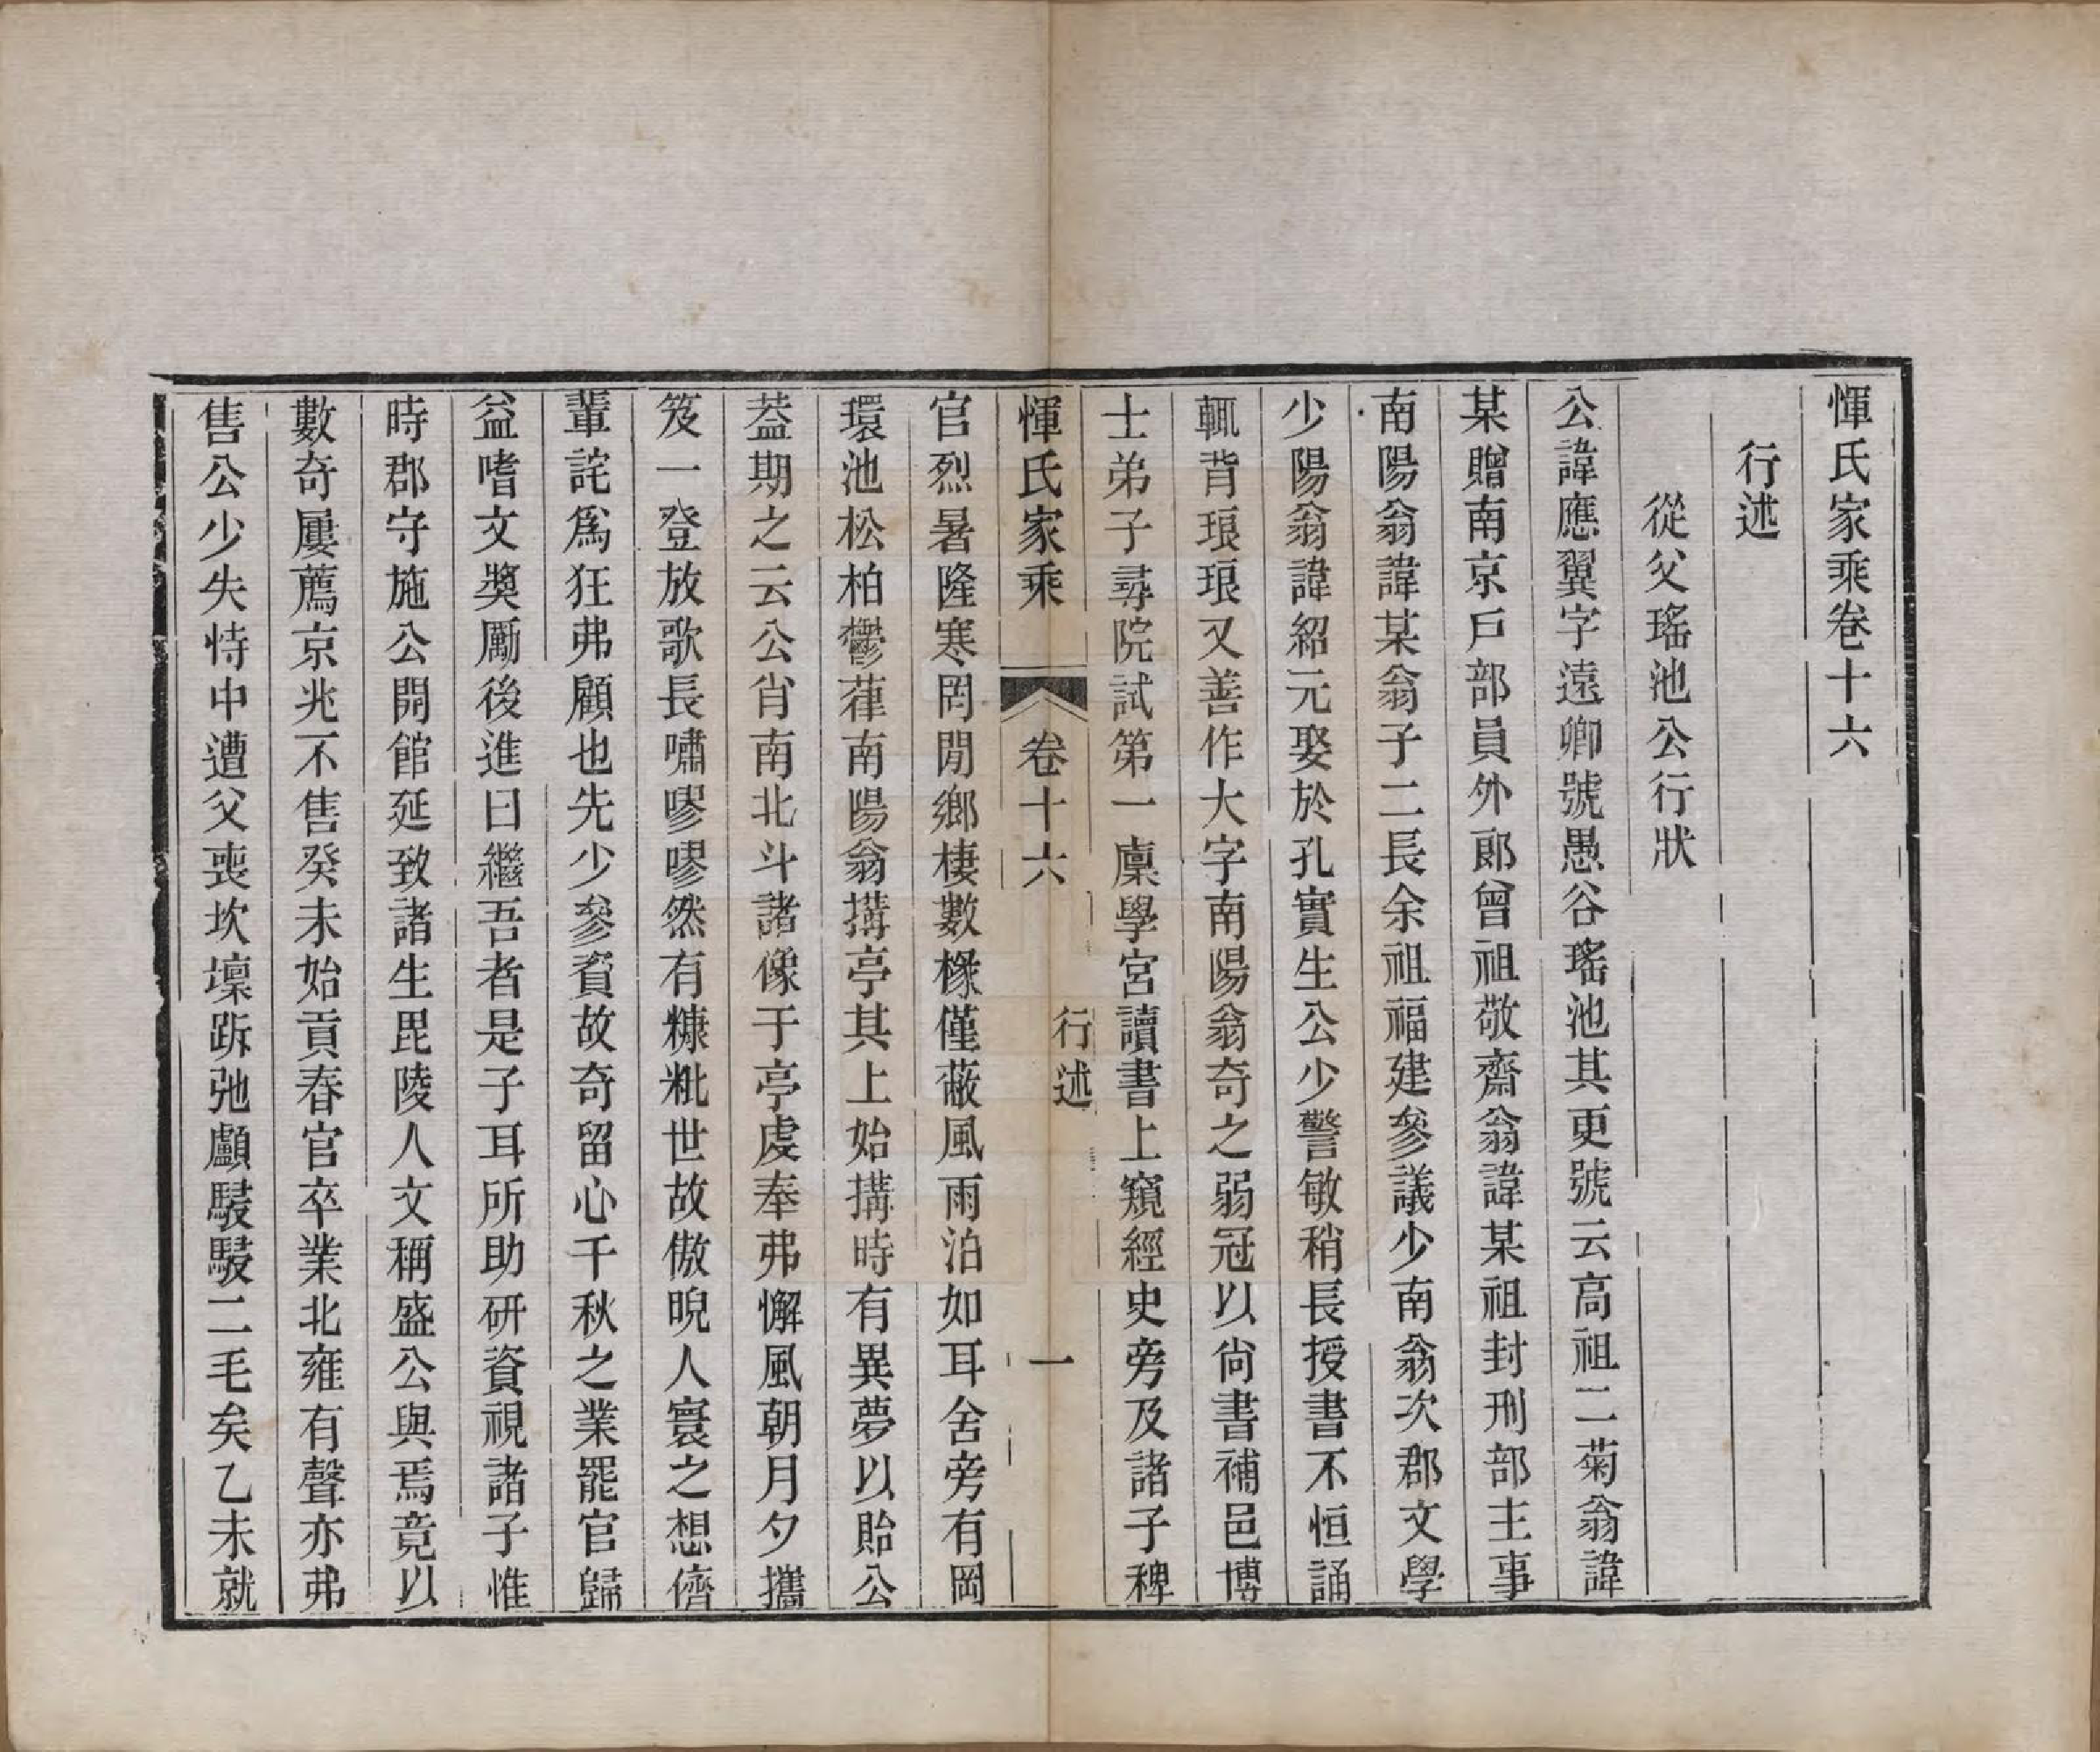 惲氏家乘卷十六
行述
從父瑤池公行狀
公諱應翼字遠卿號愚谷瑤池其更號云高祖二菊翁諱
某贈南京戶部員外郎曾祖敬齋翁諱某祖封刑部主事
南陽翁諱某翁子二長余祖福建參議少南翁次郡文學
少陽翁諱紹元娶於孔實生公少警敏稍長授書不恒誦
輒背琅琅又善作大字南陽翁奇之弱冠以尚書補邑博
士弟子尋院試第一廩學宮讀書上窺經史旁及諸子稗
惲氏家乘
卷十六
行述
一
官烈暑隆寒罔閒鄉棲數椽僅蔽風雨泊如耳舍旁有岡
環池松柏鬱葎南陽翁搆亭其上始搆時有異夢以貽公
葢期之云公肖南北斗諸像于亭虔奉弗懈風朝月夕攜
笈一登放歌長嘯嘐嘐然有糠粃世故傲睨人寰之想儕
輩詫爲狂弗顧也先少參資故奇留心千秋之業罷官歸
益嗜文奬厲後進曰繼吾者是子耳所助研資視諸子惟
時郡守施公開館延致諸生毘陵人文稱盛公與焉竟以
數奇屢薦京兆不售癸未始貢春官卒業北雍有聲亦弗
售公少失恃中遭父喪坎壈跅弛顱駸駸二毛矣乙未就